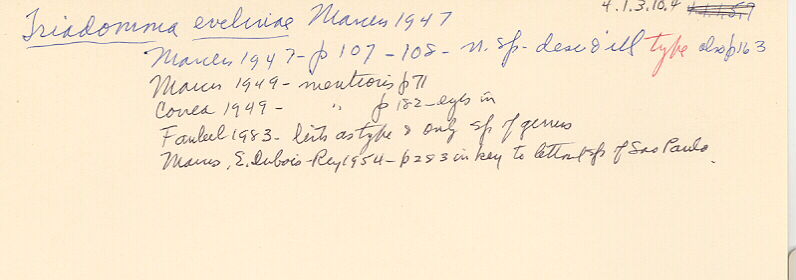 4.1.3.10.4 4.1.1.5.7
Triadomma evelinae Marcus 1947
Marcus 1947 - p 107 - 108 - n. sp. descr & ill type also p 163
Marcus 1949 - mentions p 71
Correa 1949 - " p 182 - eyes in
Faubel 1983 - lists as type & only sp of genus
Marcus, E. Dubois-Rey 1954 - p 283 in key to littoral sp of Sao Paulo.